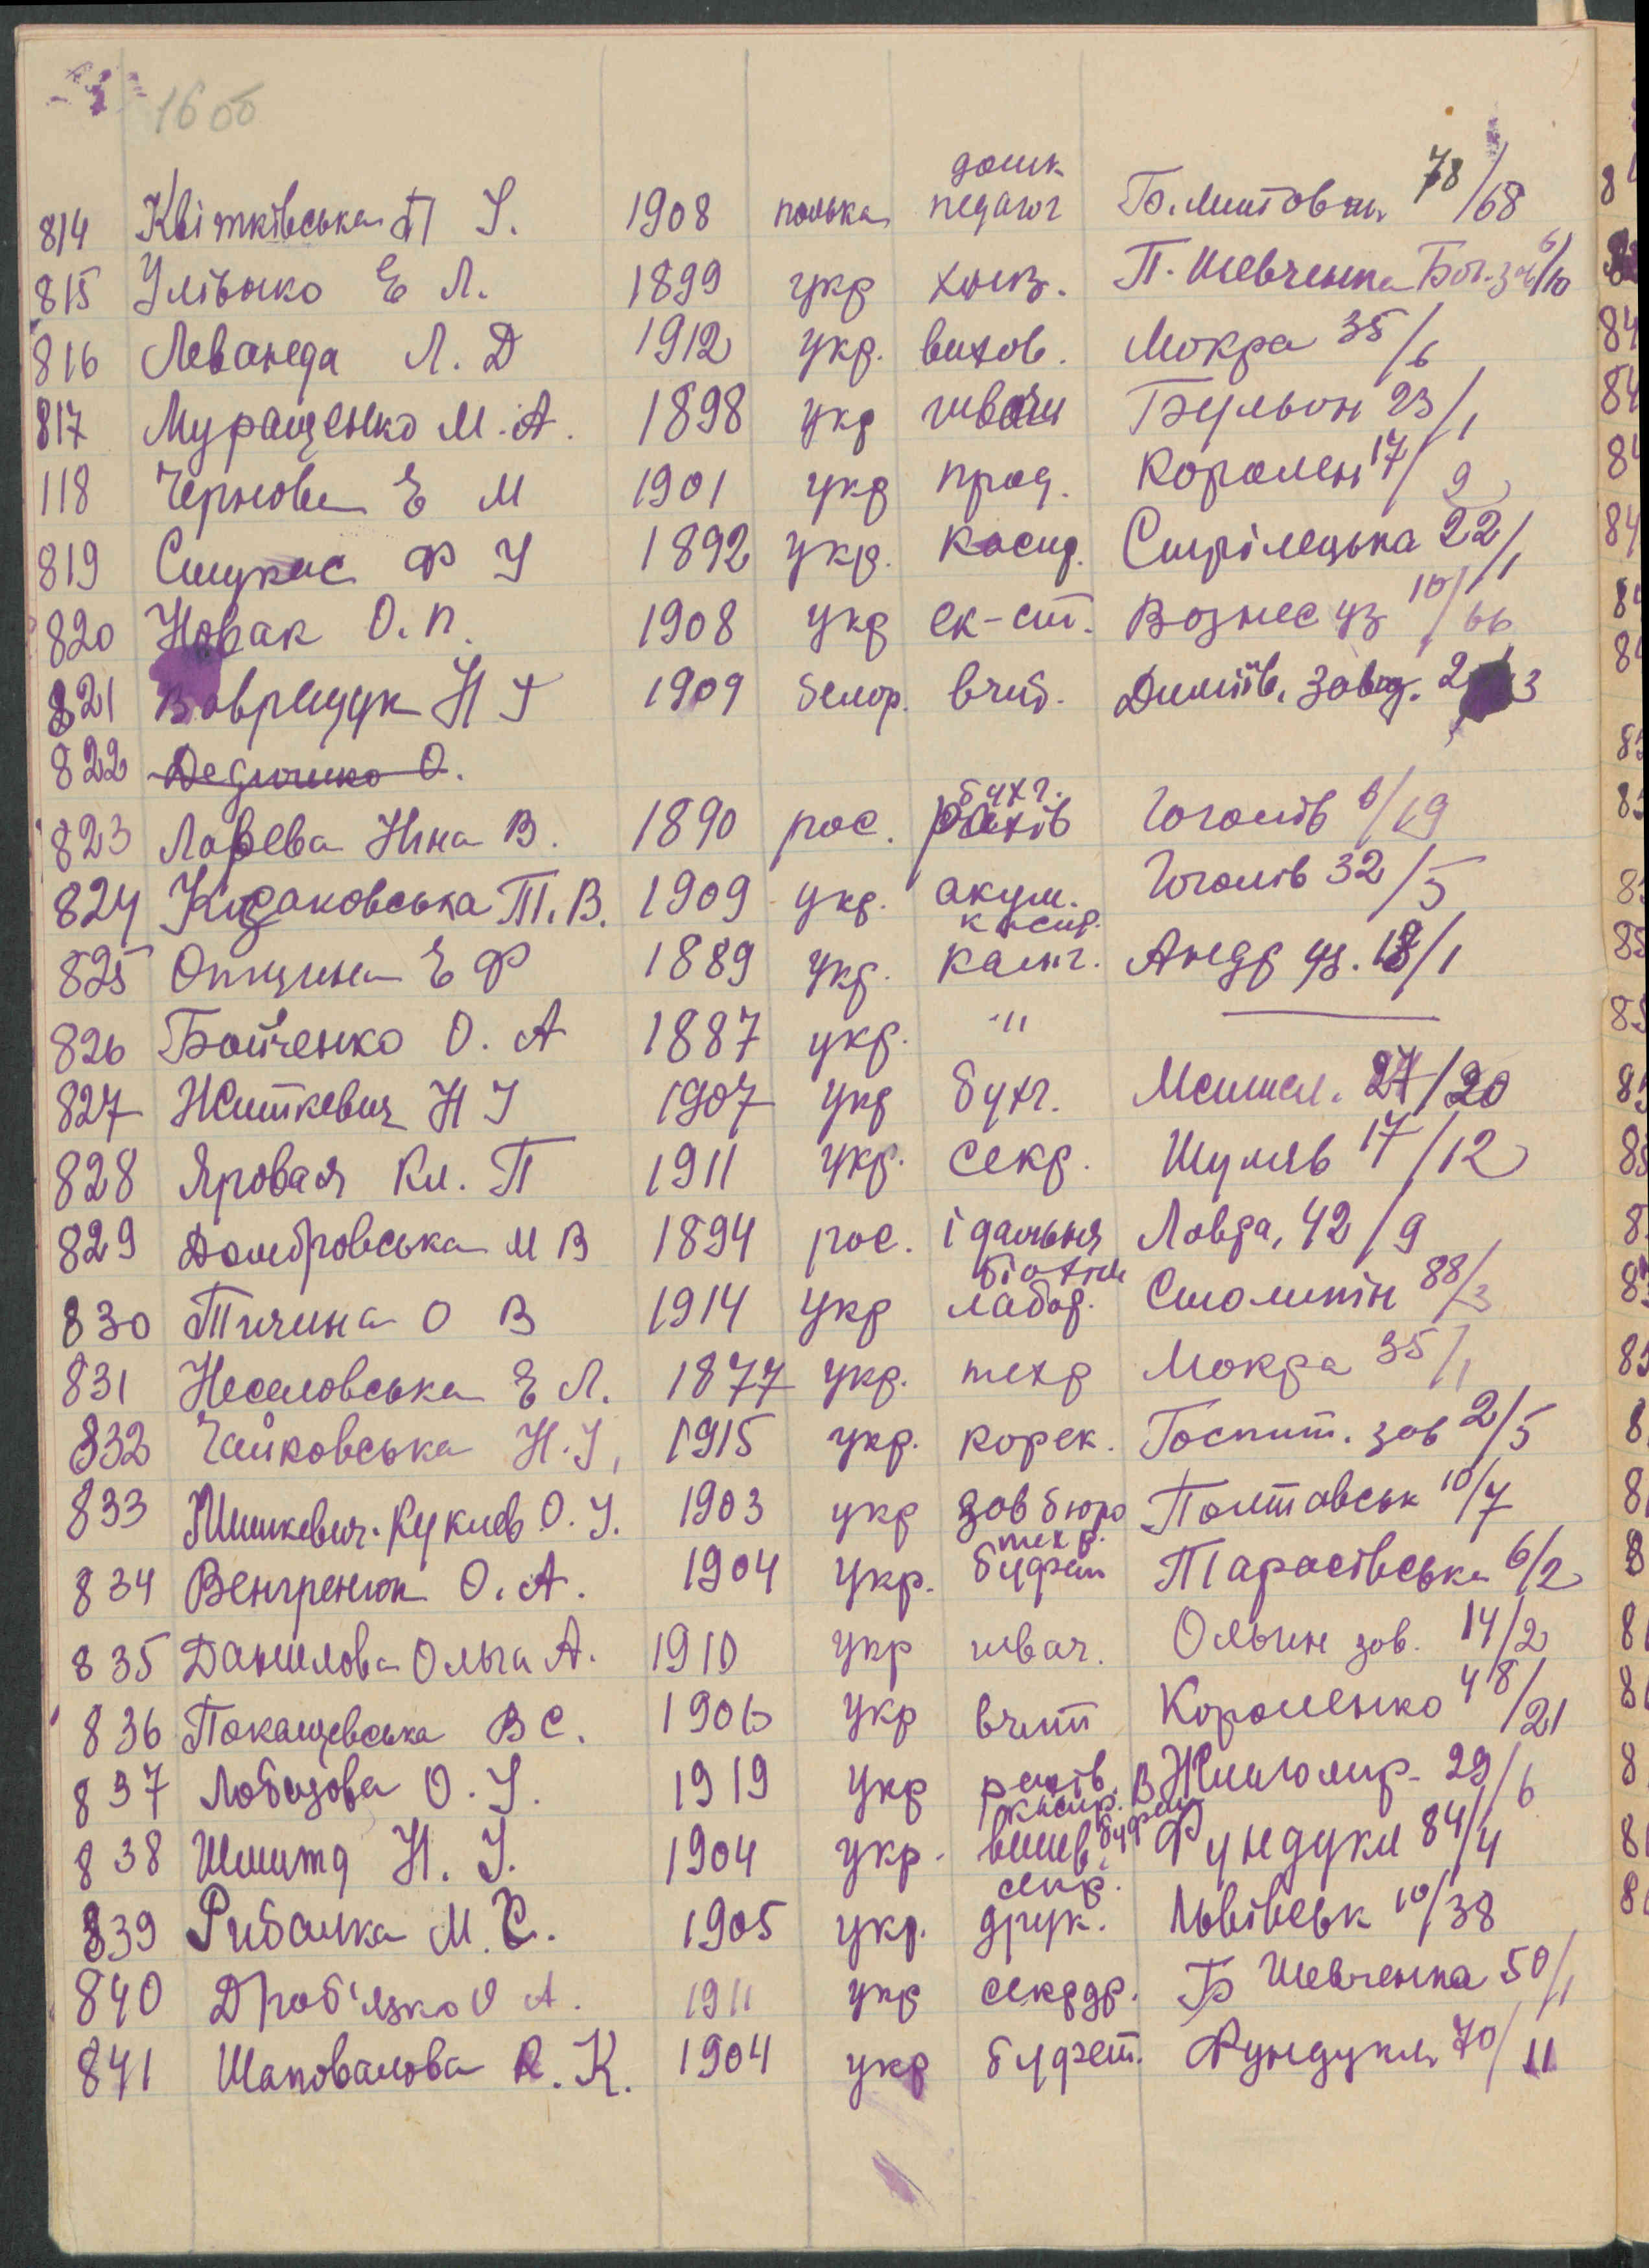 1600
814 Квітківська П І. 1908 полька дошк педагог Б. Житомир 78/68
815 Улівоко Е Л. 1899 укр П. Шевченка Бот. зав 6/10
816 Леванеда Л. Д 1912 укр. вихов. Мокра 35/6
817 Муращенко М. А. 1898 укр швачи Бульон 23/1
118 Чернова Е М 1901 укр прод. Королен 17/9
819 Ф І 1892 укр. касир. Стрілецька 22/1
820 Новак О. п. 1908 укр ек-ст. Вознес уз 10/66
821 Вавращук Н І 1909 белор. вчит. Деміїв. завод. 2 3
822 О.
823 Ларева Нина В. 1890 рос. бухг. рахів Гоголів 6/19
824 Кизаковська Т. В. 1909 укр. акум. Гоголів 32/5
825 Опицина Е Ф 1889 укр. касир. калькг. Андр уз. 18/1
826 Бойченко О. А 1887 укр. -"
827 Житкевич Н І 1907 укр бухг. 27/20
828 Яровая Кл. П 1911 укр. секр. Шуляв 17/12
829 Домбровська М В 1894 рос. їдальня Ловра, 42/9
830 Тичина О В 1914 укр біохім лабор. Столипін 88/3
831 Неселовська Е Л. 1877 укр. техр Мокра 35/1
832 Чайковська Н. І, 1915 укр. корек. Госпит. зав 2/5
833 Мишкевич-Куклєв О. І. 1903 укр зав бюро Полтавськ 10/7
834 Венгренюк О. А. 1904 укр. техр. буфет Тарасівська 6/2
835 Данилова Ольга А. 1910 укр швач. Ольгин зав. 14/2
836 Покащевська В С. 1906 укр вчит Короленко 48/21
837 Лобазова О. І. 1919 укр рахів. касир. В Житомир. 29/6
838 Шмитд Н. І. 1904 укр. вишив. буфет Фундукл 84/4
839 Рибалка М. С. 1905 укр. секр. друк. Львівськ 10/38
840 Дроб'язко О А. 1911 укр секрдр. Б Шевченка 50/1
841 Шаповалова А. К. 1904 укр буфет. Фундукл 70/11